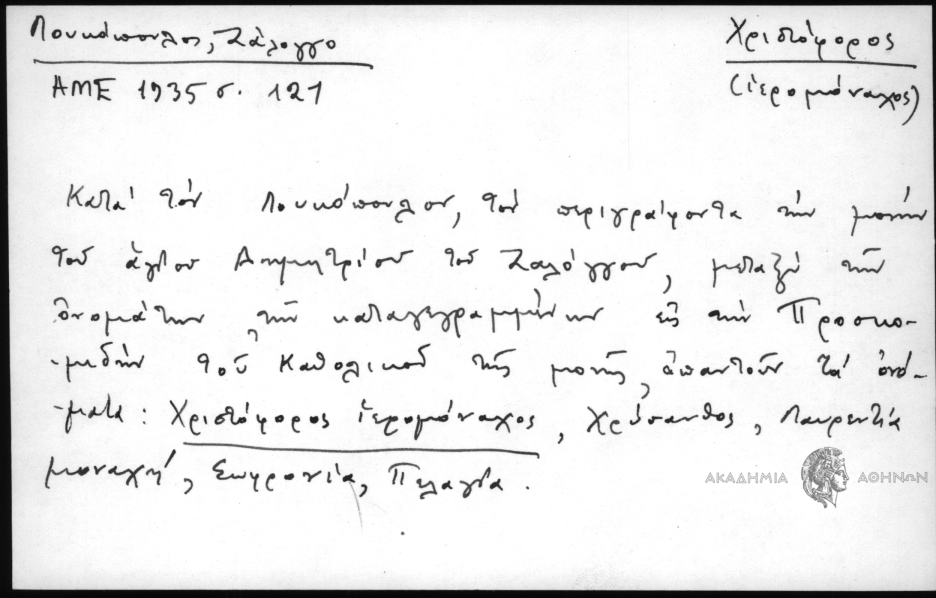 Λουκόπουλος, Ζάλογγο
ΑΜΕ 1935 σ. 121
Χριστόφορος
(ἱερομόναχος)
Κατά τόν Λουκόπουλον, τόν περιγράψοντα τήν μονήν
τοῦ ἁγίου Δημητρίου τοῦ Ζαλόγγου, μεταξύ τῶν
ὀνομάτων, τῶν καταγεγραμμένων εἰς τήν Προσκο-
-μιδήν τοῦ Καθολικοῦ τῆς μονῆς, ἀπαντοῦν τά ὀνό-
-ματα: Χριστόφορος ἱερομόναχος, Χρύσανθος, Λαυρεντία
μοναχή, Σωφρονία, Πελαγία.
ΑΚΑΔΗΜΙΑ ΑΘΗΝΩΝ